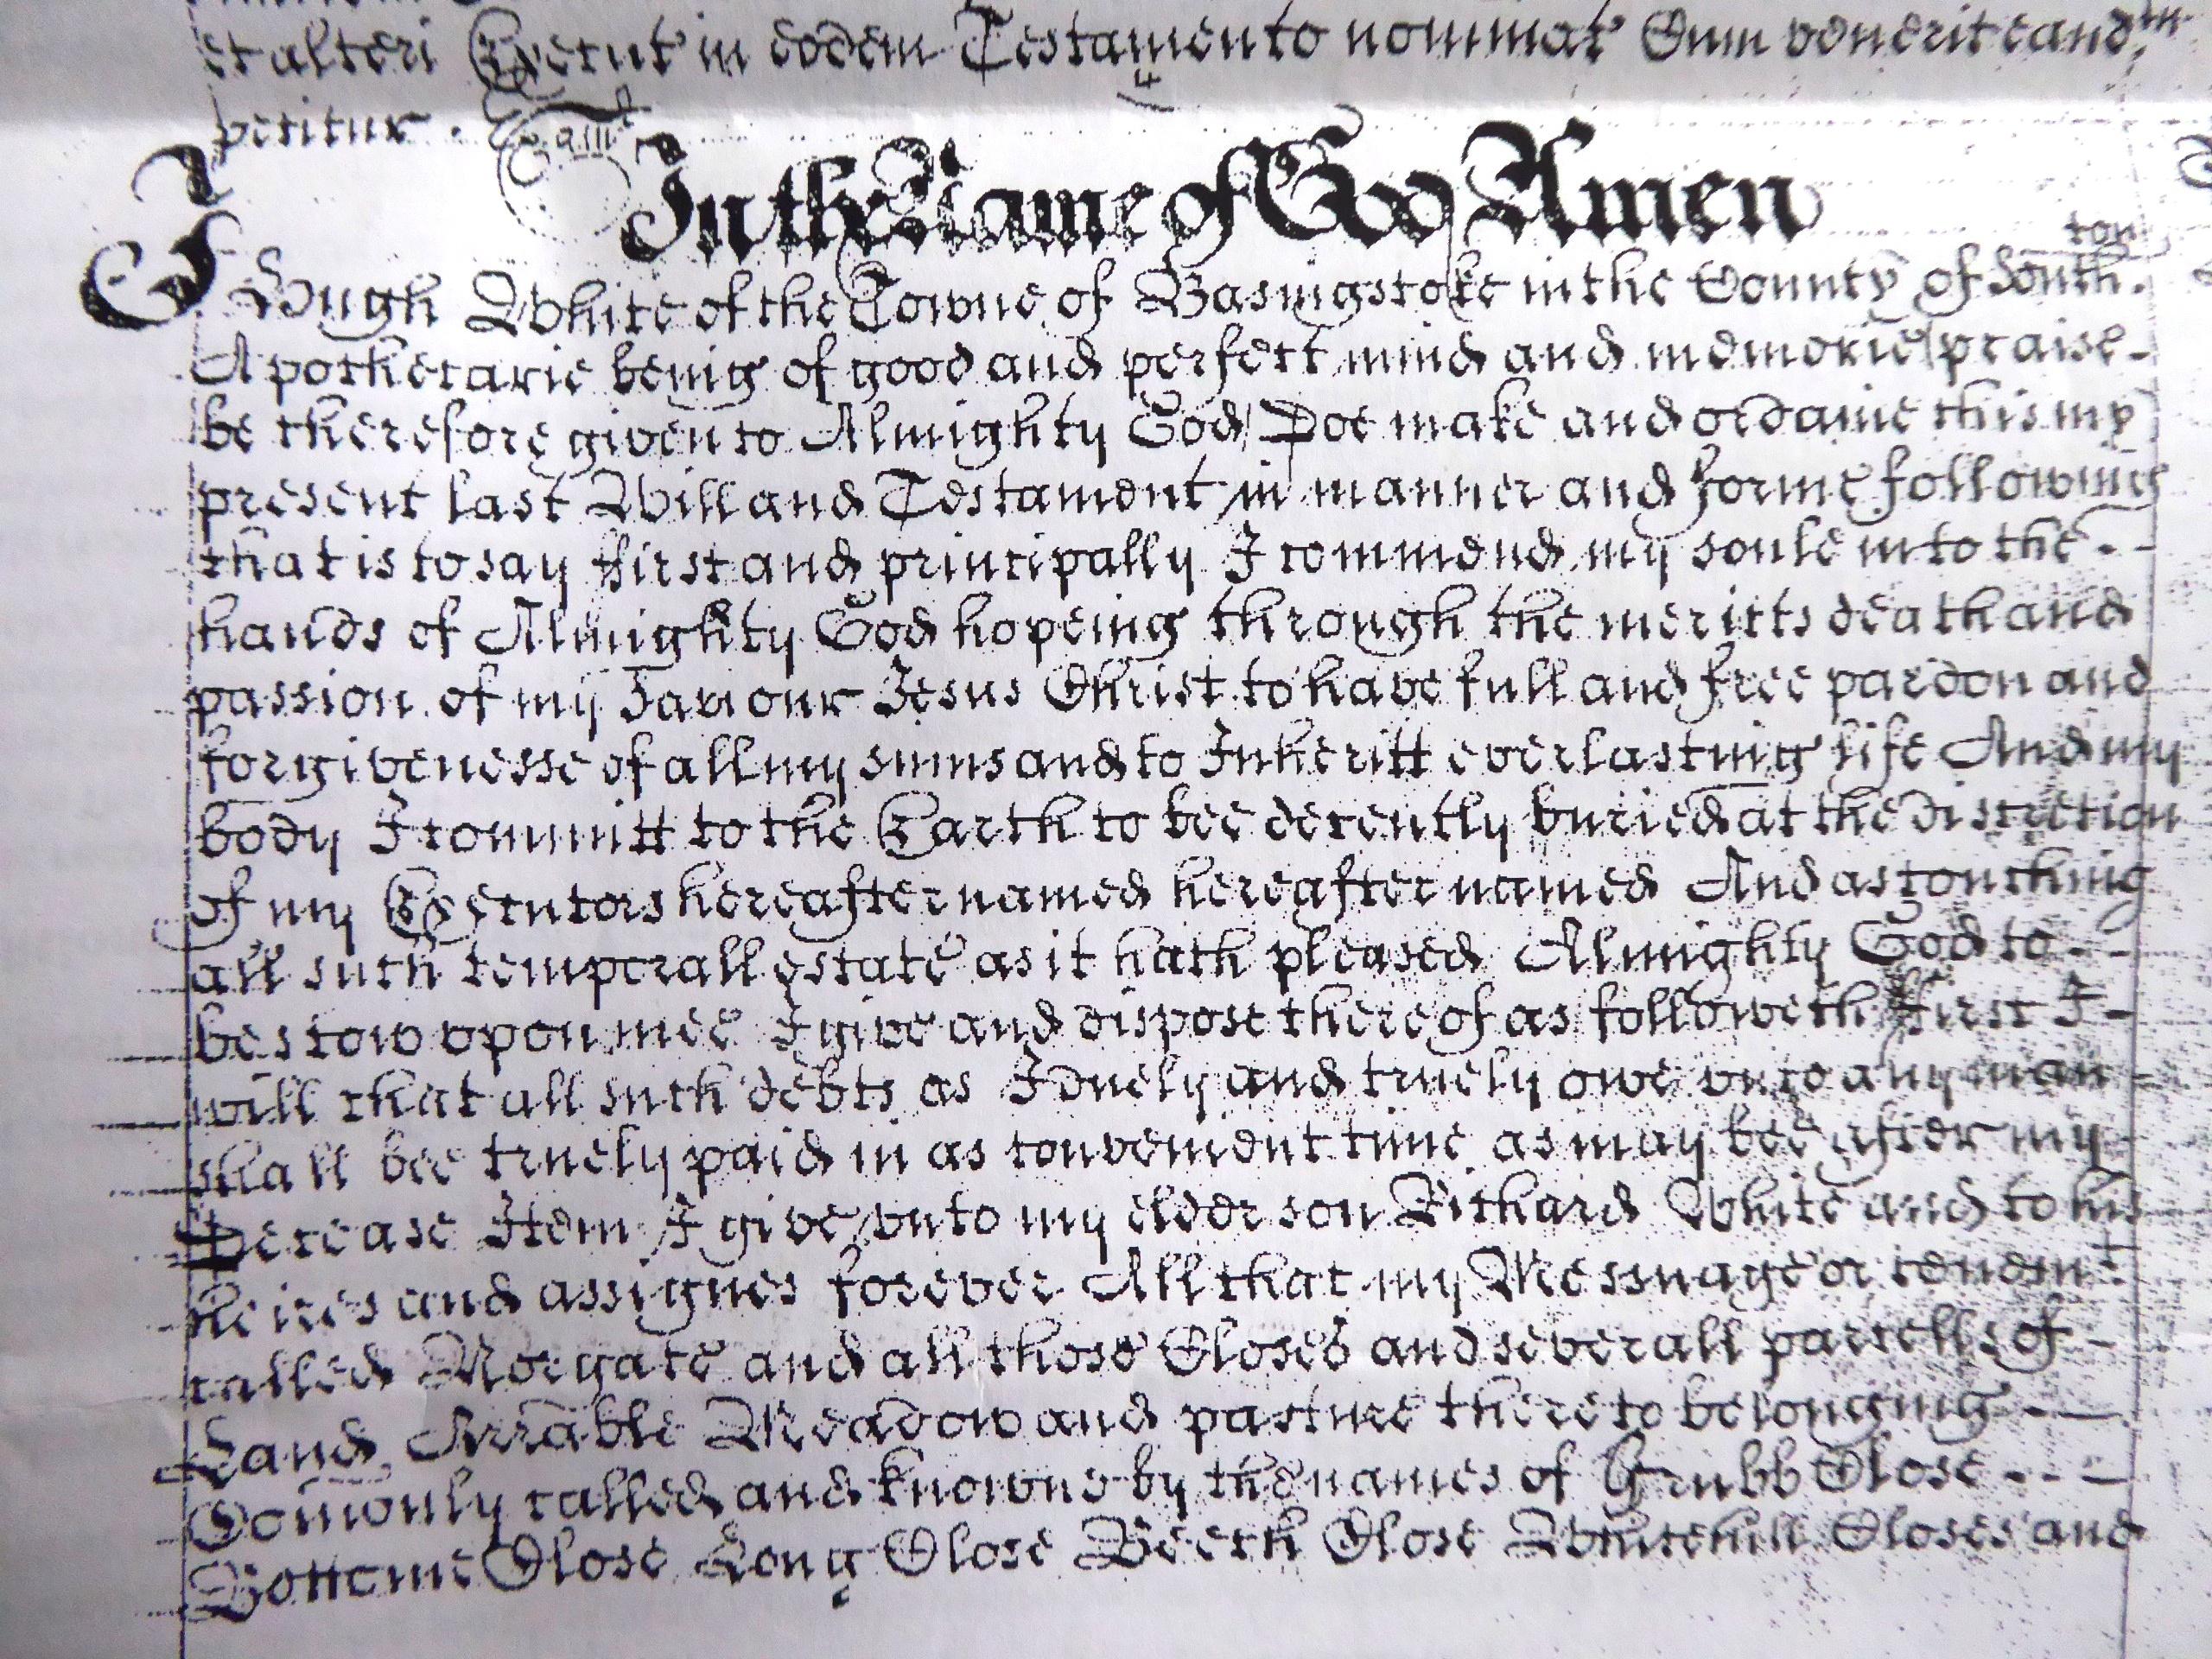 et alteri Execut' in eodem Testamento nominat' Cum venerit eand^m
petitur. Exam^t
In the Name of God Amen
I Hough White of the Towne of Basingstoke in the County of South^ton.
Apothecarie being of good and perfect mind and memorie (praise-
be therefore given to Almighty God) Doe make and ordaine this my
present last Will and Testament in manner and forme following
that is to say ffirst and principally I commend my soule into the - -
hands of Almighty God hopeing through the meritts death and
passion of my Saviour Jesus Christ to have full and free pardon and
forgivenesse of all my sinns and to Inheritt everlasting life And my
body I committ to the Earth to bee decently buried at the discretion
of my Executors hereafter named hereafter named And as touching
all such temporall estate as it hath pleased Almighty God to - -
bestow upon mee I give and dispose thereof as followeth ffirst I -
will that all such debts as I duely and truely owe unto any man -
shall bee truely paid in as convenient time as may bee after my -
Decease Item I give unto my elder son Richard White and to his
heires and assignes forever All that my Messuage or tenem^t
called Norgate and all those Closes and severall parcells of -
Land Arrable Meadow and pasture thereto belonging - —
Comonly called and knowne by the names of Grubb Close - - -
Bottome Close Long Close Beech Close Whitehill Closes and